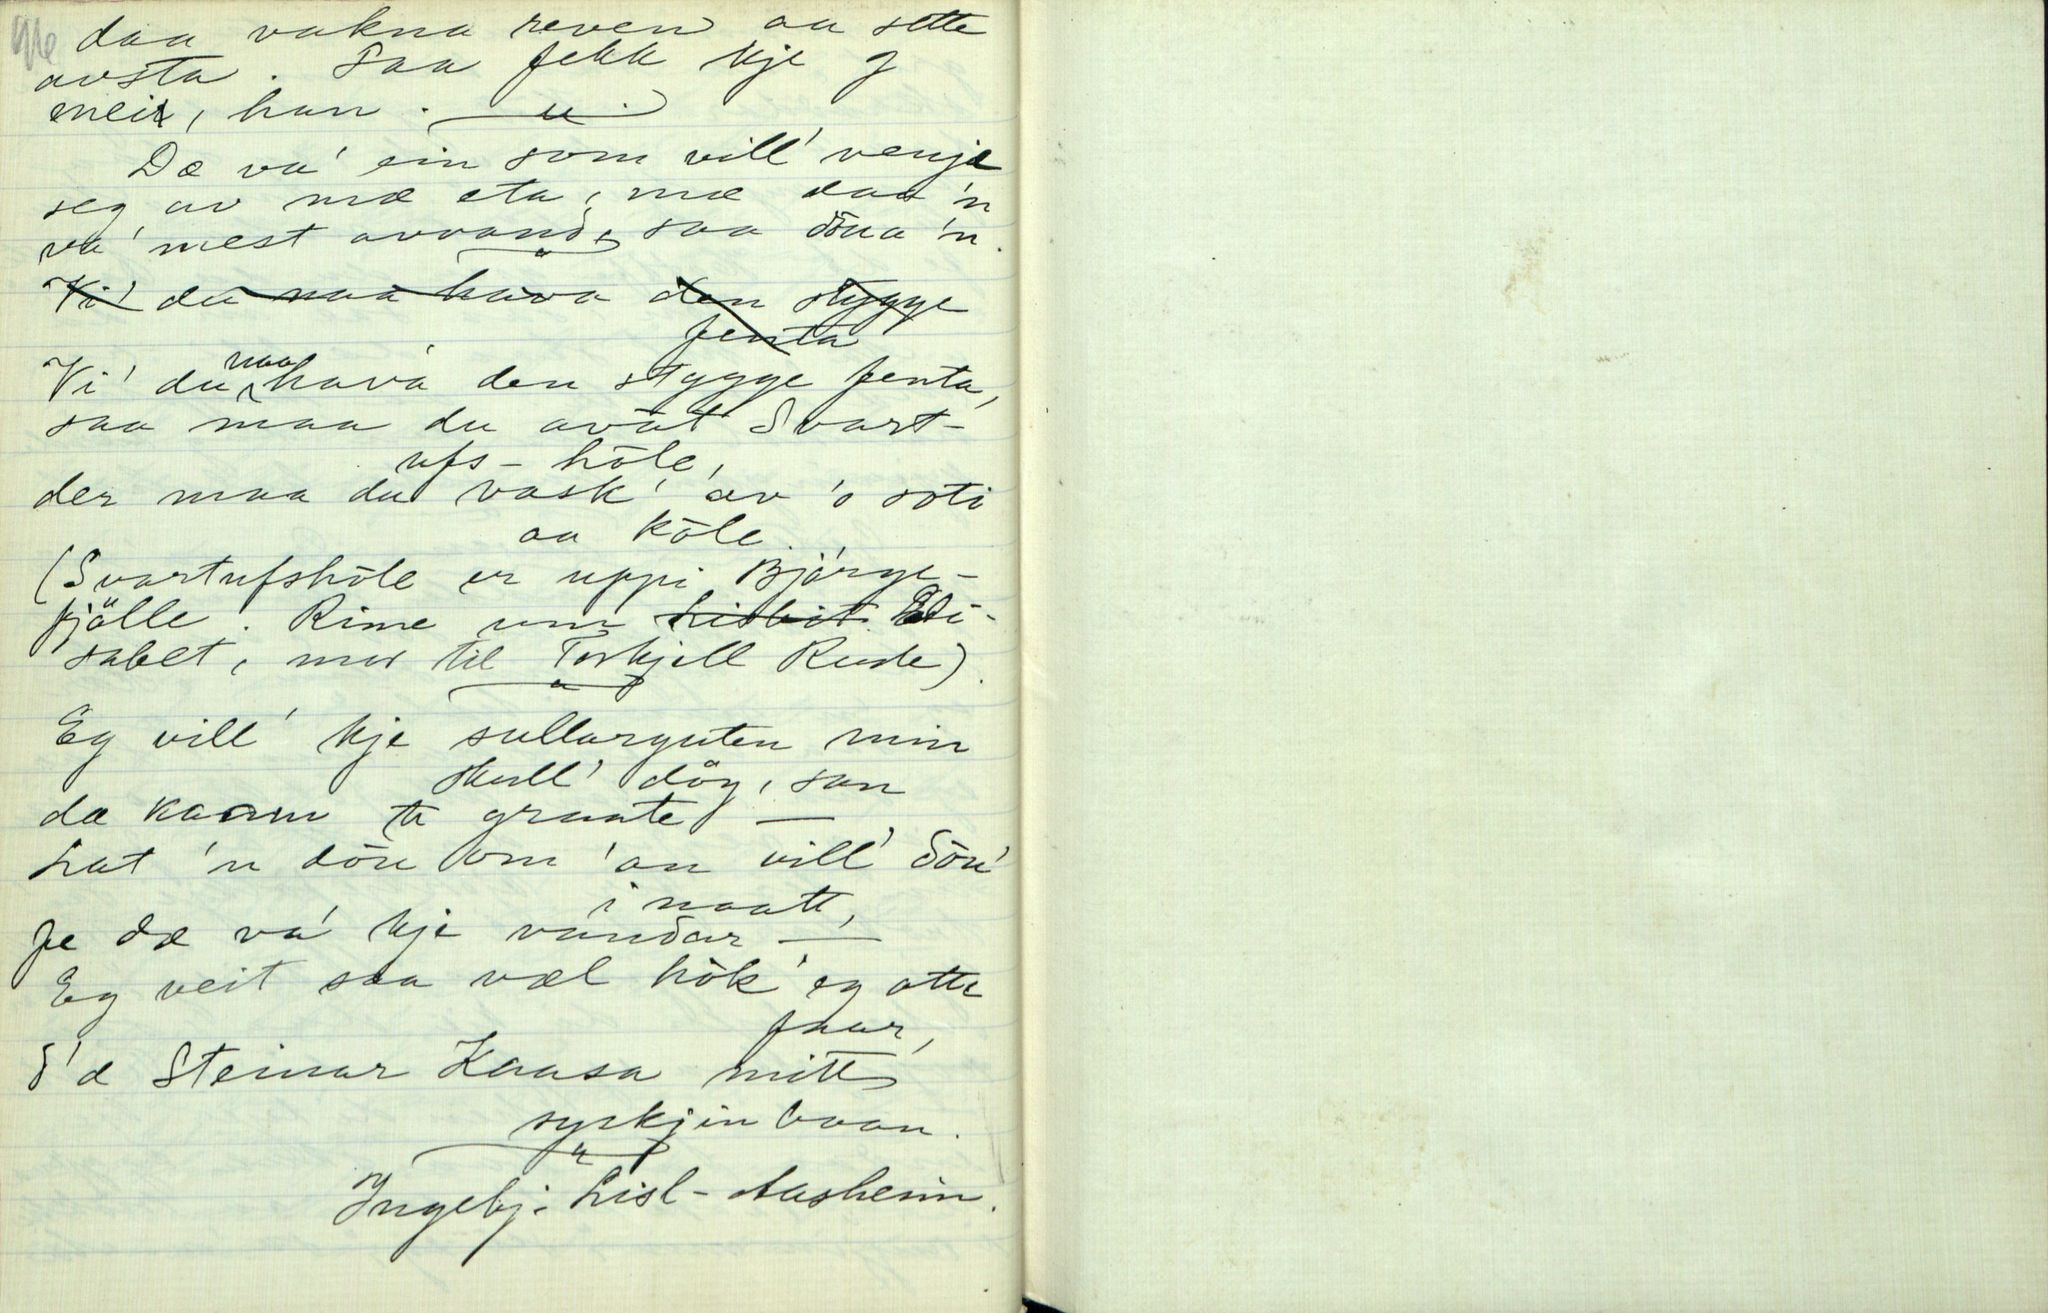 daa vakna reven aa sette
avsta. Saa fekk kje g
meir, han. — " —
Dæ va' ein som vill' venje
seg av mæ eta, mæ daa 'n
va' mest avvand, saa döua 'n.
Vi' du naa hava den stygge
fenta
Vi' du naa hava den stygge fenta,
saa maa du avát Svart-
ufs-höle,
der maa du vask' av 'o soti
aa köle.
(Svartufshöle er uppi Bjørge-
fjälle. Rime um Lisbit Eli-
sabet, mor til Torkjell Rude).
Eg vill' kje sullarguten min
skull' döy, saa
dæ kaam te graate —
Lat 'n döu om 'an vill' döu'
i naatt,
fe dæ va' kje vandar —
Eg veit saa væl hök' eg atte
faar,
d'æ Steinar Kaasa mitt
syskjinbaan.
Ingebj. Lisl-Aasheim.